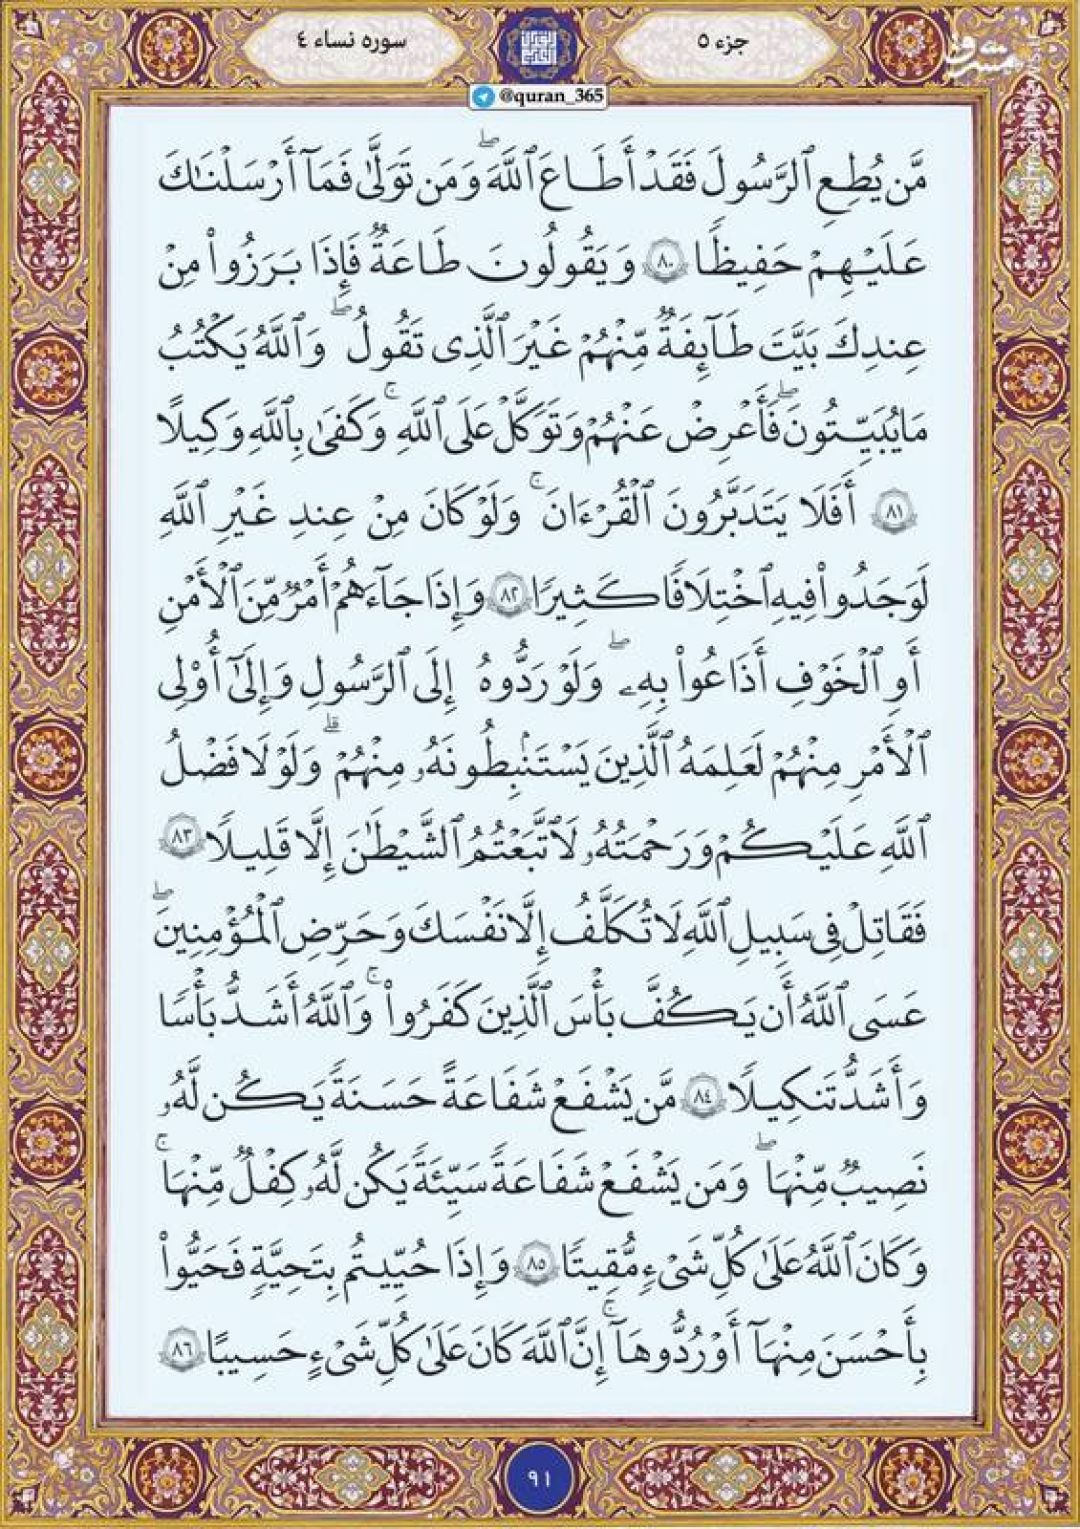 جزء ٥
سوره نساء ٤
@quran_365
مَّن يُطِعِ ٱلرَّسُولَ فَقَدْ أَطَاعَ ٱللَّهَ ۖ وَمَن تَوَلَّىٰ فَمَآ أَرْسَلْنَٰكَ
عَلَيْهِمْ حَفِيظًا ٨٠ وَيَقُولُونَ طَاعَةٌ فَإِذَا بَرَزُوا۟ مِنْ
عِندِكَ بَيَّتَ طَآئِفَةٌ مِّنْهُمْ غَيْرَ ٱلَّذِى تَقُولُ ۖ وَٱللَّهُ يَكْتُبُ
مَا يُبَيِّتُونَ ۖ فَأَعْرِضْ عَنْهُمْ وَتَوَكَّلْ عَلَى ٱللَّهِ ۚ وَكَفَىٰ بِٱللَّهِ وَكِيلًا
٨١ أَفَلَا يَتَدَبَّرُونَ ٱلْقُرْءَانَ ۚ وَلَوْ كَانَ مِنْ عِندِ غَيْرِ ٱللَّهِ
لَوَجَدُوا۟ فِيهِ ٱخْتِلَٰفًا كَثِيرًا ٨٢ وَإِذَا جَآءَهُمْ أَمْرٌ مِّنَ ٱلْأَمْنِ
أَوِ ٱلْخَوْفِ أَذَاعُوا۟ بِهِۦ ۖ وَلَوْ رَدُّوهُ إِلَى ٱلرَّسُولِ وَإِلَىٰٓ أُو۟لِى
ٱلْأَمْرِ مِنْهُمْ لَعَلِمَهُ ٱلَّذِينَ يَسْتَنۢبِطُونَهُۥ مِنْهُمْ ۗ وَلَوْلَا فَضْلُ
ٱللَّهِ عَلَيْكُمْ وَرَحْمَتُهُۥ لَٱتَّبَعْتُمُ ٱلشَّيْطَٰنَ إِلَّا قَلِيلًا ٨٣
فَقَٰتِلْ فِى سَبِيلِ ٱللَّهِ لَا تُكَلَّفُ إِلَّا نَفْسَكَ وَحَرِّضِ ٱلْمُؤْمِنِينَ ۖ
عَسَى ٱللَّهُ أَن يَكُفَّ بَأْسَ ٱلَّذِينَ كَفَرُوا۟ ۚ وَٱللَّهُ أَشَدُّ بَأْسًا
وَأَشَدُّ تَنكِيلًا ٨٤ مَّن يَشْفَعْ شَفَٰعَةً حَسَنَةً يَكُن لَّهُۥ
نَصِيبٌ مِّنْهَا ۖ وَمَن يَشْفَعْ شَفَٰعَةً سَيِّئَةً يَكُن لَّهُۥ كِفْلٌ مِّنْهَا ۗ
وَكَانَ ٱللَّهُ عَلَىٰ كُلِّ شَىْءٍ مُّقِيتًا ٨٥ وَإِذَا حُيِّيتُم بِتَحِيَّةٍ فَحَيُّوا۟
بِأَحْسَنَ مِنْهَآ أَوْ رُدُّوهَآ ۗ إِنَّ ٱللَّهَ كَانَ عَلَىٰ كُلِّ شَىْءٍ حَسِيبًا ٨٦
٩١